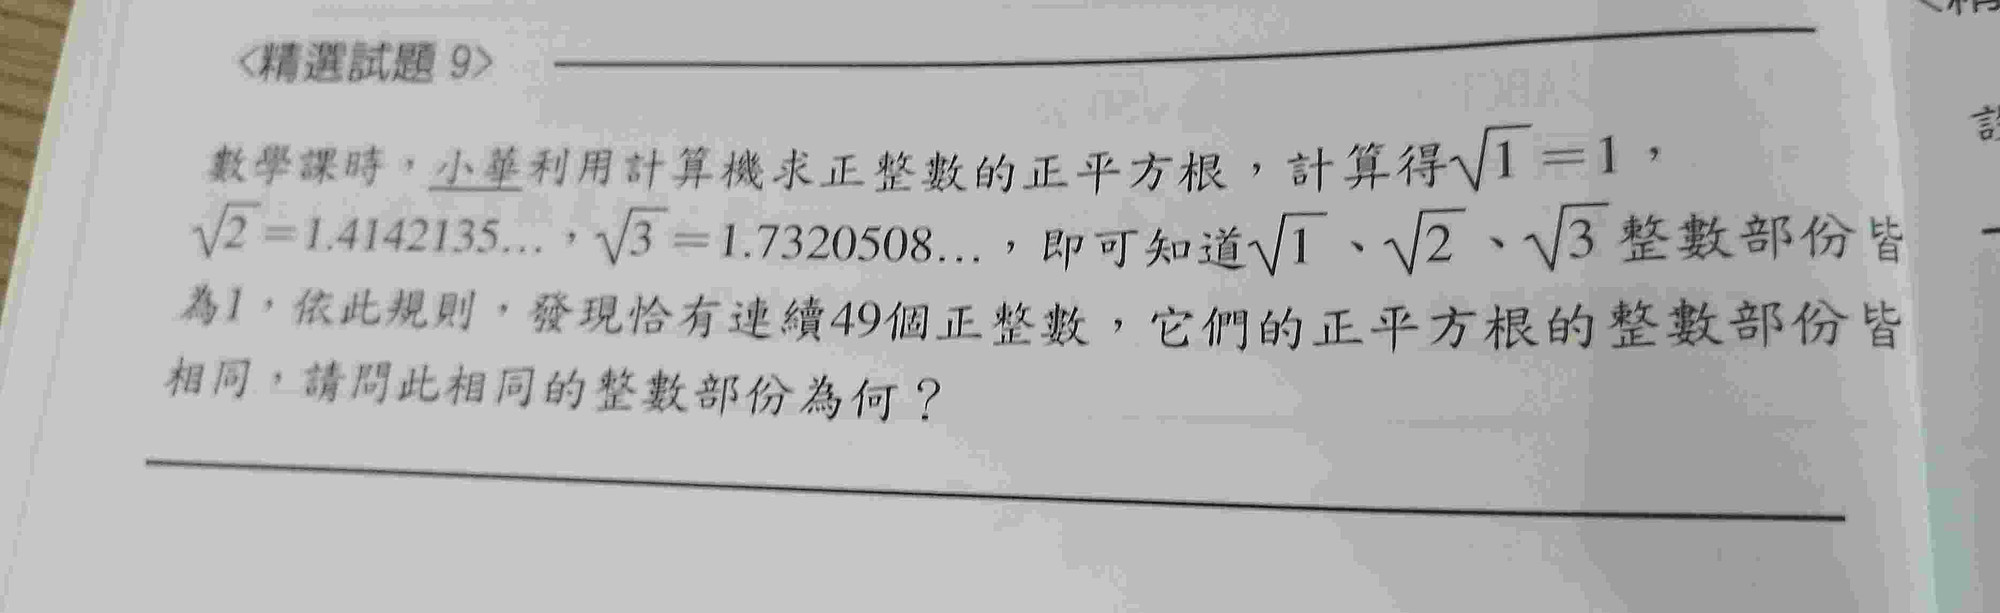 <精選試題 9>
數學課時，小華利用計算機求正整數的正平方根，計算得√1＝1，
√2＝1.4142135…，√3＝1.7320508…，即可知道√1、√2、√3整數部份皆
為1，依此規則，發現恰有連續49個正整數，它們的正平方根的整數部份皆
相同，請問此相同的整數部份為何？